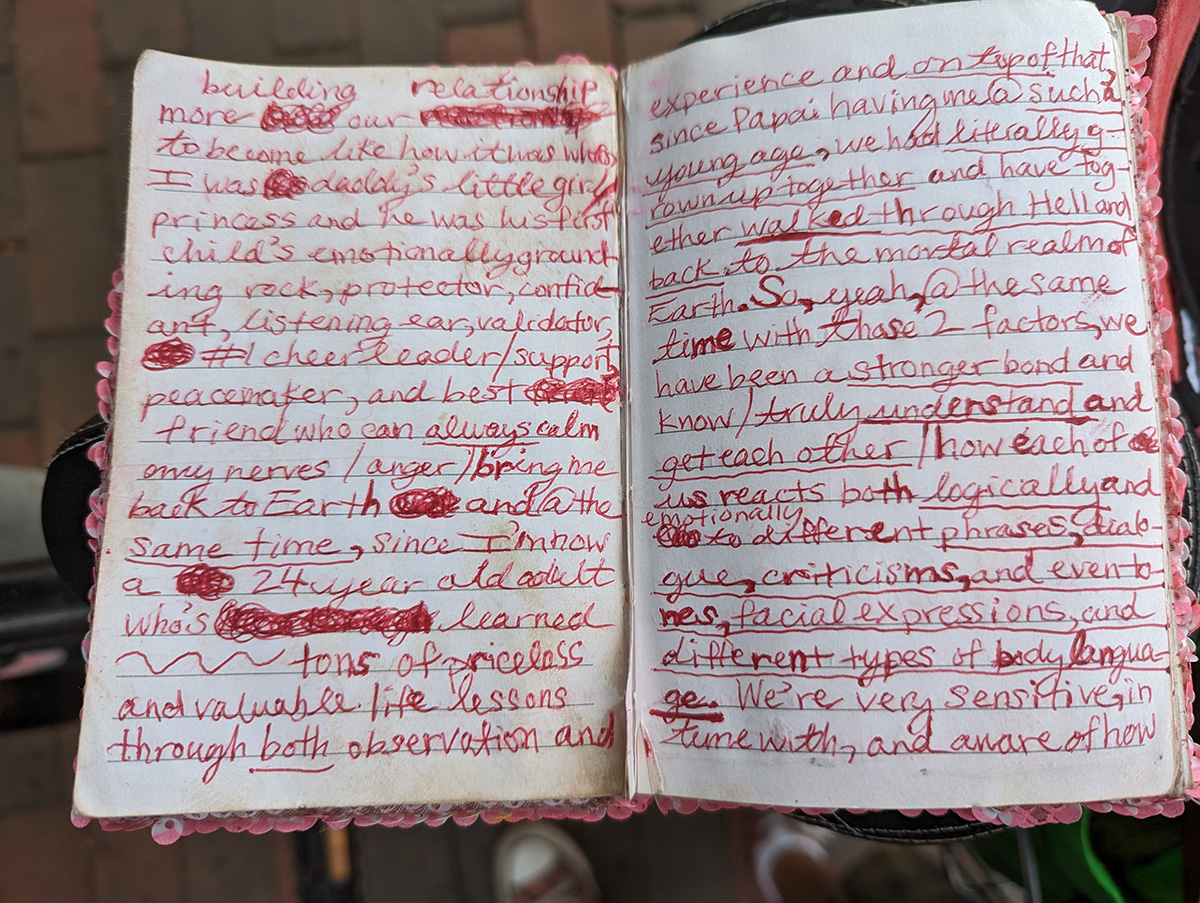 building relationship
more our
to become like how it was when
I was daddy's little girl/
princess and he was his first
child's emotionally ground-
ing rock, protector, confid-
ant, listening ear, validator,
#1 cheerleader/support,
peacemaker, and best
friend who can always calm
my nerves/anger/bring me
back to Earth and @ the
same time, since I'm now
a 24 year old adult
who's learned
tons of priceless
and valuable life lessons
through both observation and
experience and on top of that,
since Papa: having me @ such a
young age, we had literally g-
rown up together and have tog-
ether walked through Hell and
back to the mortal realm of
Earth. So, yeah, @ the same
time with those 2 factors, we
have been a stronger bond and
know/truly understand and
get each other/how each of
us reacts both logically and
emotionally
to different phrases, dialo-
gue, criticisms, and even to-
nes, facial expressions, and
different types of body langua-
ge. We're very sensitive, in
tune with, and aware of how